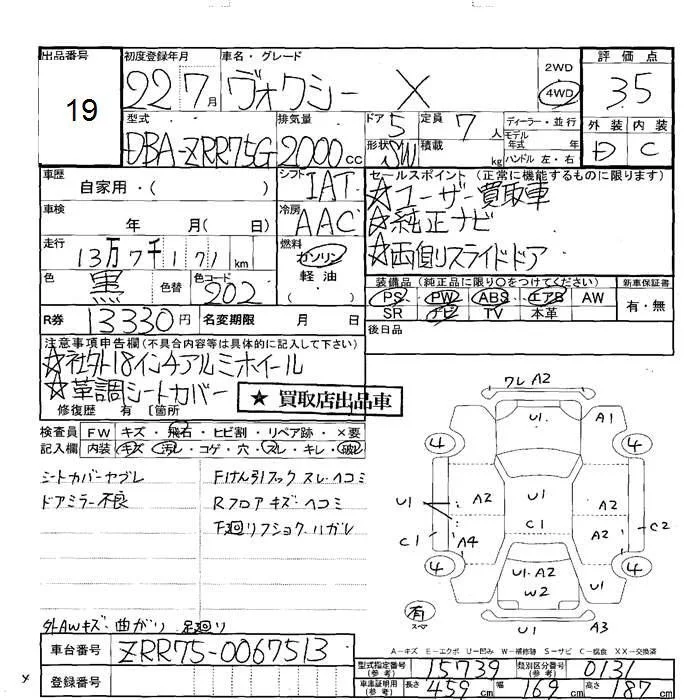 出品番号
19
初度登録年月
22 7月
車名・グレード
ヴォクシー X
2WD
4WD
評価点
3.5
外装 内装
D C
型式
DBA-ZRR75G
排気量
2000cc
ドア 5
形状 SW
定員 7人
積載 kg
ディーラー・並行
モデル年式 年
ハンドル 左・右
車歴
自家用・( )
シフト IAT
車検
年 月( 日)
冷房 AAC
走行
13万7千171km
燃料
ガソリン
軽油
( )
色
黒
色替
色コード
202
R券 13330円
名変期限 月 日
セールスポイント (正常に機能するものに限ります)
☆ユーザー買取車
☆純正ナビ
☆両側リスライドドア
装備品(純正品に限り○をつけてください)
PS PW ABS エアB AW
SR ナビ TV 本革
新車保証書
有・無
後日品
注意事項申告欄(不具合内容等は具体的に記入して下さい)
☆社外18インチアルミホイール
☆革調シートカバー
★ 買取店出品車
修復歴 有 〔箇所
検査員記入欄
FW キズ・飛石・ヒビ割・リペア跡・×要
内装 キズ・汚レ・コゲ・穴・スレ・キレ・破レ
シートカバーヤブレ
ドアミラー不良
Fけん引フック スレ・ヘコミ
Rフロアキズ・ヘコミ
F廻リフショク・ハガレ
外AWキズ・曲がり 足廻り
車台番号 ZRR75-0067513
登録番号
ワレ A2
U1
A1
4
4
U1
A2
U1
A2
C2
C1
C1
A4
A2
4
4
U1・A2
W2
U1
有
スペ
U1
A3
A-キズ E-エクボ U-凹み W-補修跡 S-サビ C-腐食 XX-交換済
型式指定番号(参考) 15739
類別区分番号(参考) 0131
車庫証明用(参考) 長さ 459cm 幅 169cm 高さ 187cm